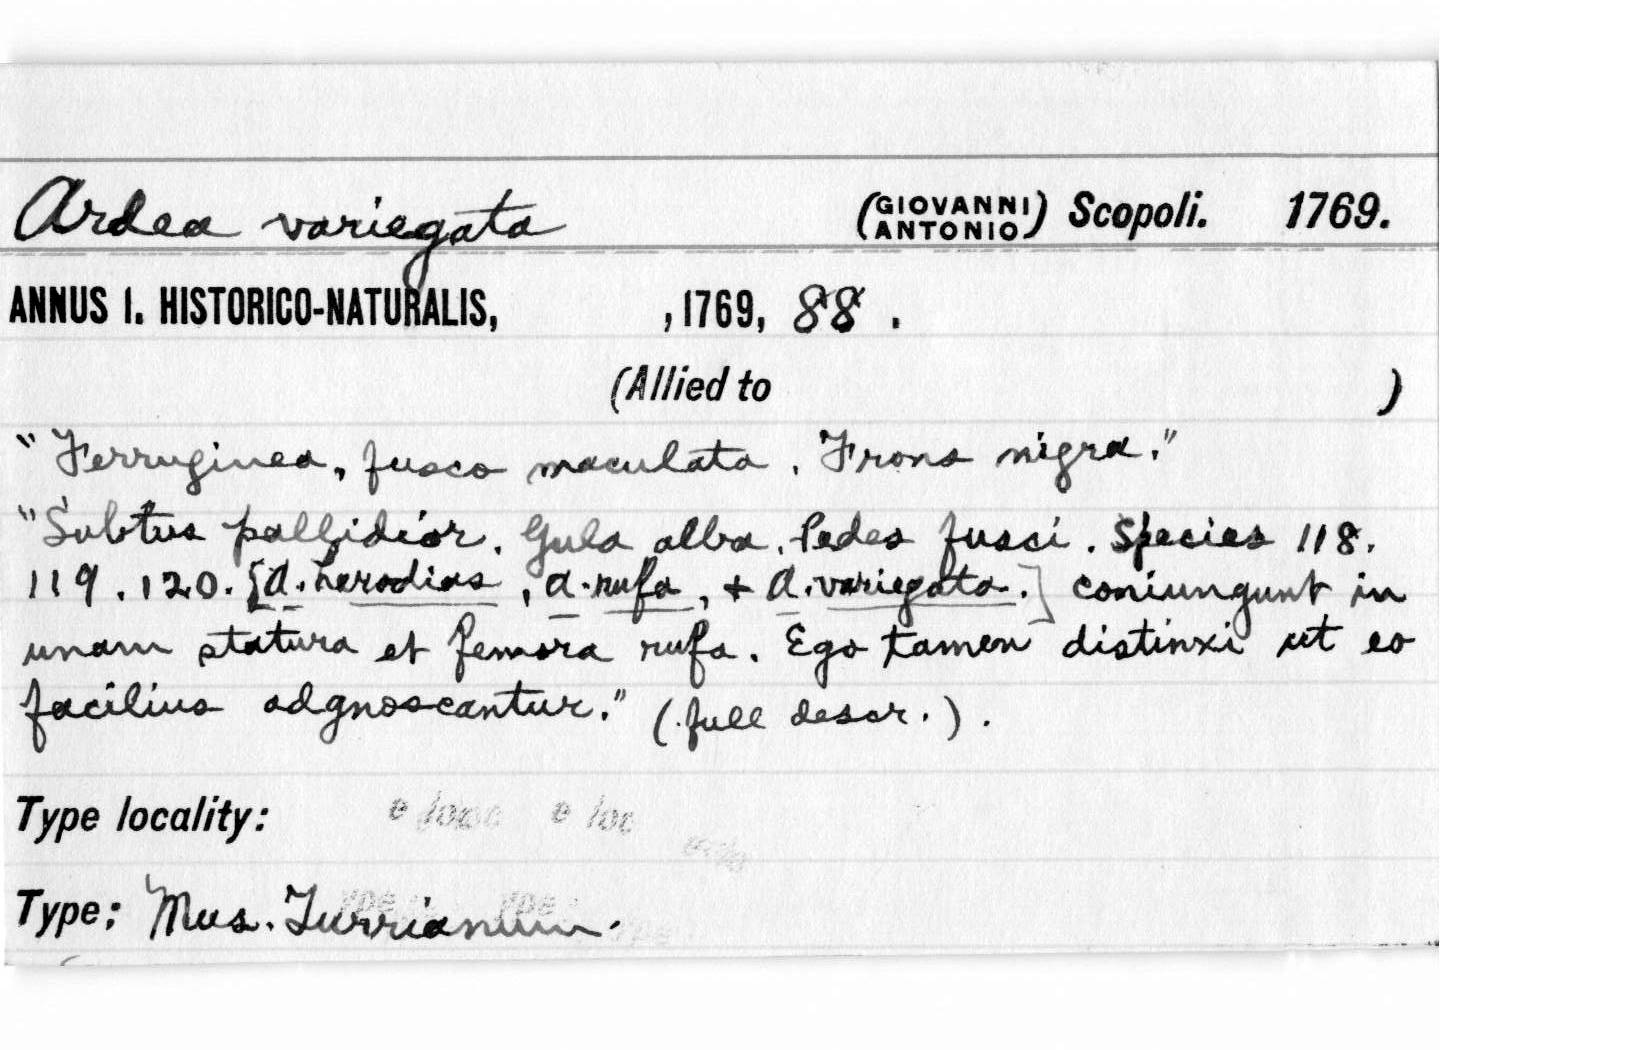 Ardea variegata (GIOVANNI ANTONIO) Scopoli. 1769.
ANNUS I. HISTORICO-NATURALIS, , 1769, 88 .
(Allied to )
"Ferruginea, fusco maculata. Frons nigra."
"Subtus pallidior. Gula alba. Pedes fusci. Species 118.
119. 120. [A. herodias, A. rufa, + A. variegata.] coniungunt in
unam statura et femora rufa. Ego tamen distinxi ut eo
facilius adgnoscantur." (full descr.).
Type locality:
Type: Mus. Turrianum.